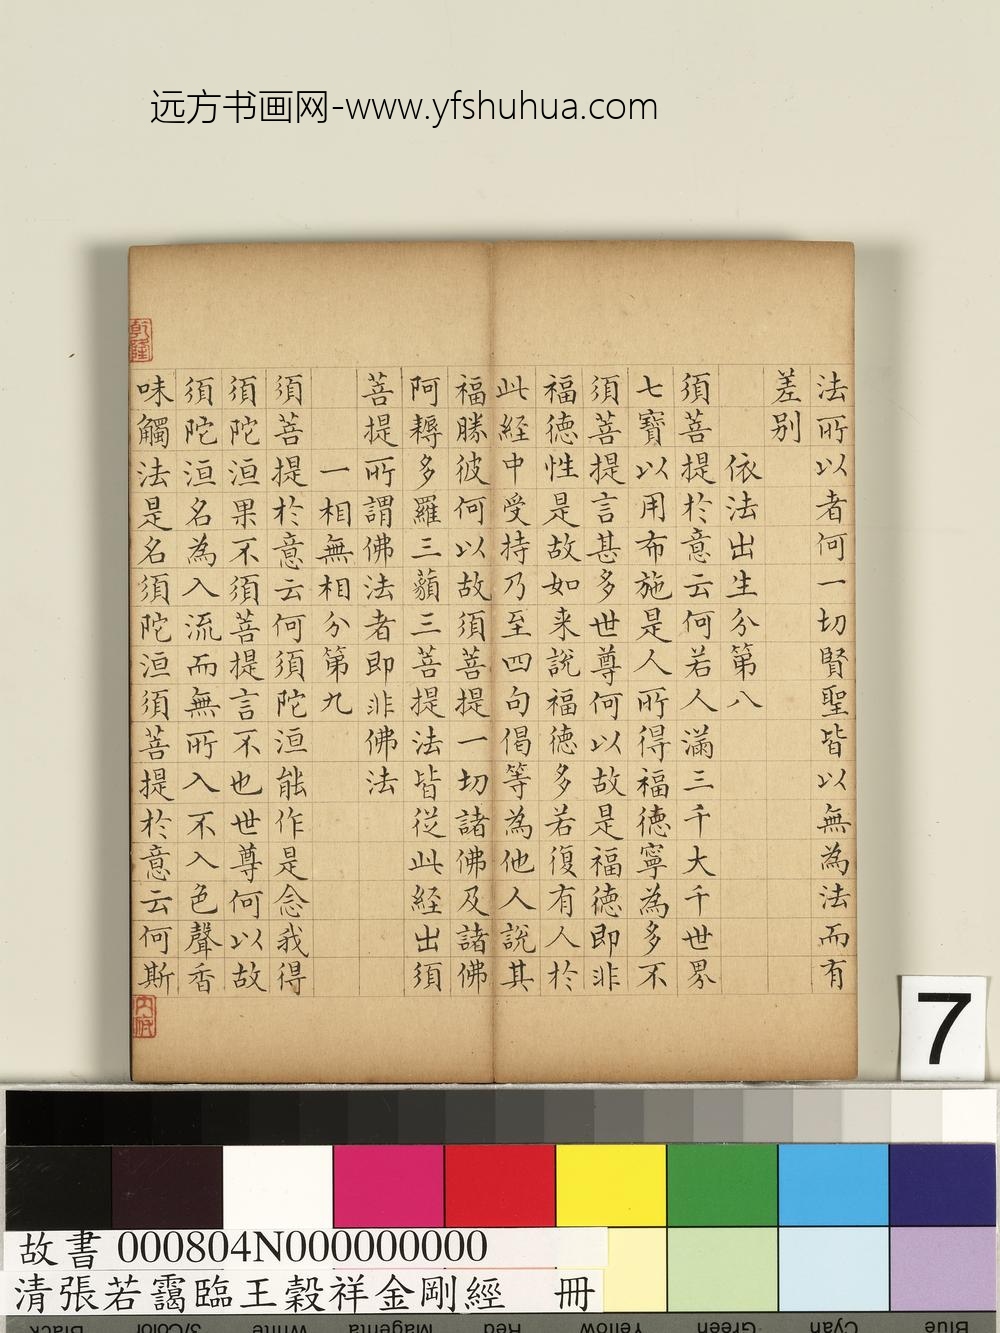 远方书画网-www.yfshuhua.com
法所以者何一切賢聖皆以無為法而有
差别
依法出生分第八
須菩提於意云何若人滿三千大千世界
七寶以用布施是人所得福德寧為多不
須菩提言甚多世尊何以故是福德即非
福德性是故如来說福德多若復有人於
此経中受持乃至四句偈等為他人說其
福勝彼何以故須菩提一切諸佛及諸佛
阿耨多羅三藐三菩提法皆從此経出須
菩提所謂佛法者即非佛法
一相無相分第九
須菩提於意云何須陀洹能作是念我得
須陀洹果不須菩提言不也世尊何以故
須陀洹名為入流而無所入不入色聲香
味觸法是名須陀洹須菩提於意云何斯
乾隆
内府
7
故書 000804N000000000
清張若靄臨王穀祥金剛經 冊
Black
3/Color
White
Magenta
Red
Yellow
Green
Cyan
Blue